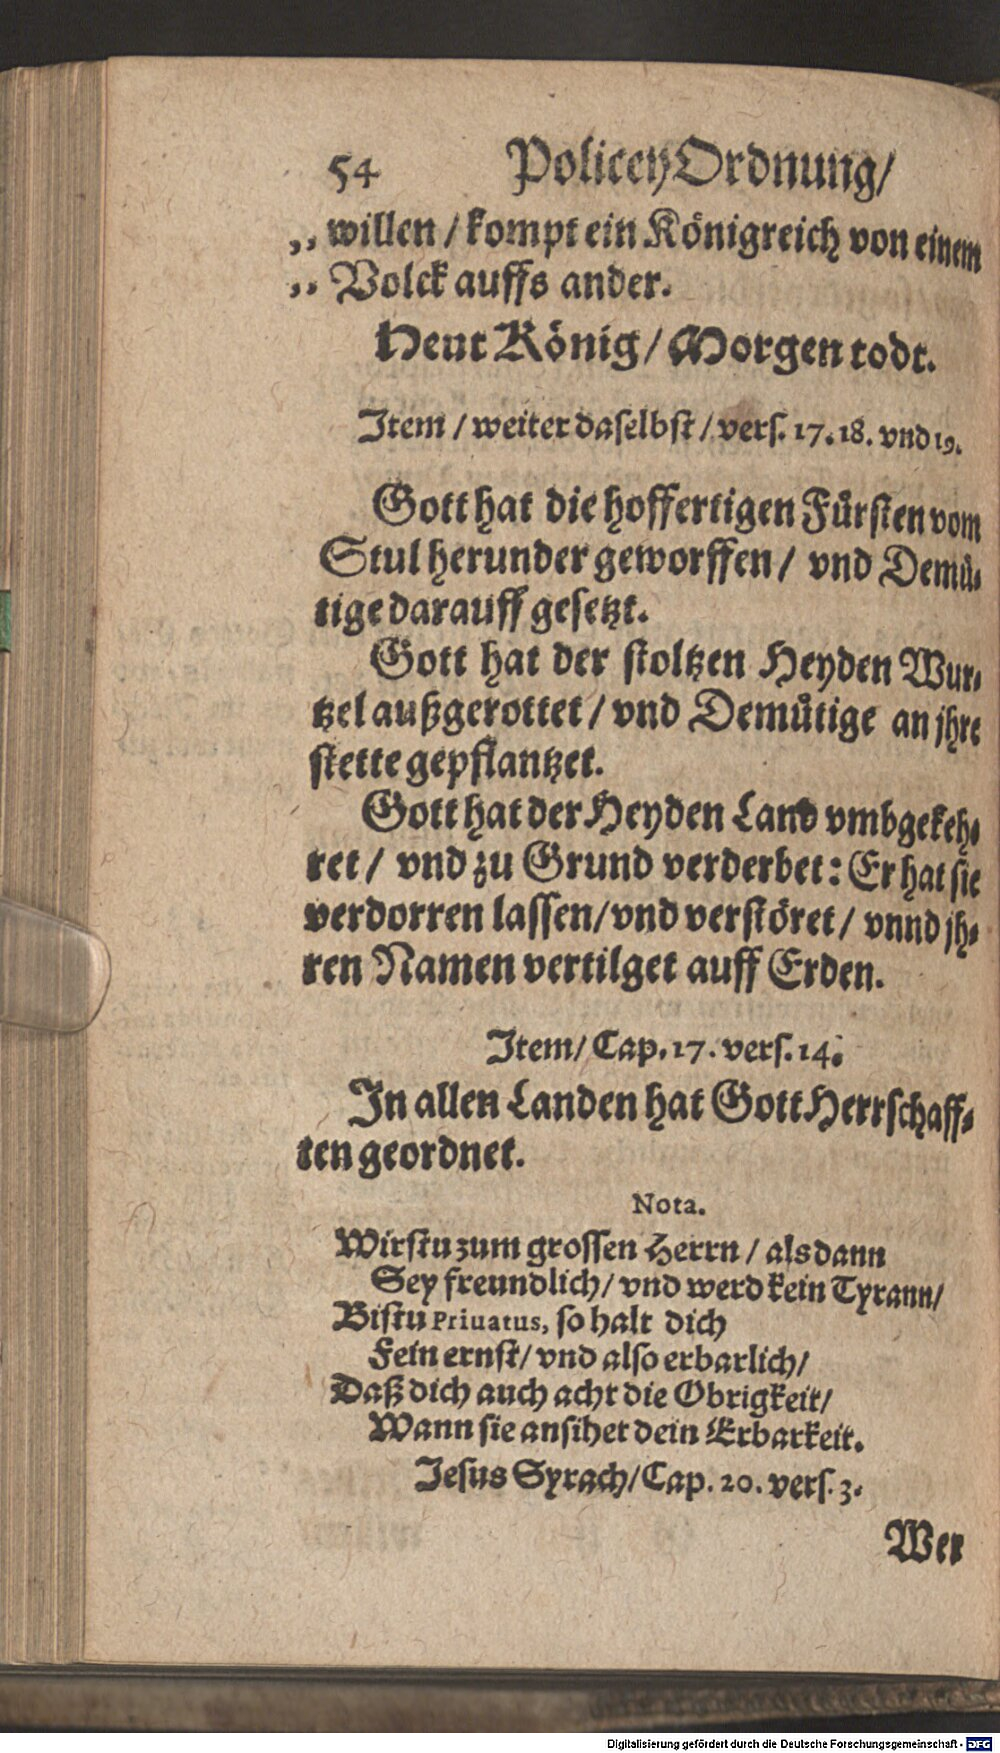 54 Policey Ordnung/
„ willen / kompt ein Königreich von einem
„ Volck auffs ander.
Heut König / Morgen todt.
Item / weiter daselbst / vers. 17. 18. vnd 19.
Gott hat die hoffertigen Fürsten vom
Stul herunder geworffen / vnd Demü-
tige darauff gesetzt.
Gott hat der stoltzen Heyden Wur-
tzel außgerottet / vnd Demütige an jhre
stette gepflantzet.
Gott hat der Heyden Land vmbgekeh-
ret / vnd zu Grund verderbet: Er hat sie
verdorren lassen / vnd verstöret / vnnd jh-
ren Namen vertilget auff Erden.
Item / Cap. 17. vers. 14.
In allen Landen hat Gott Herrschaff-
ten geordnet.
Nota.
Wirstu zum grossen Herrn / alsdann
Sey freundlich / vnd werd kein Tyrann /
Bistu Priuatus, so halt dich
Fein ernst / vnd also erbarlich /
Daß dich auch acht die Obrigkeit /
Wann sie ansihet dein Erbarkeit.
Jesus Syrach / Cap. 20. vers. 3.
Wer
Digitalisierung gefördert durch die Deutsche Forschungsgemeinschaft - DFG